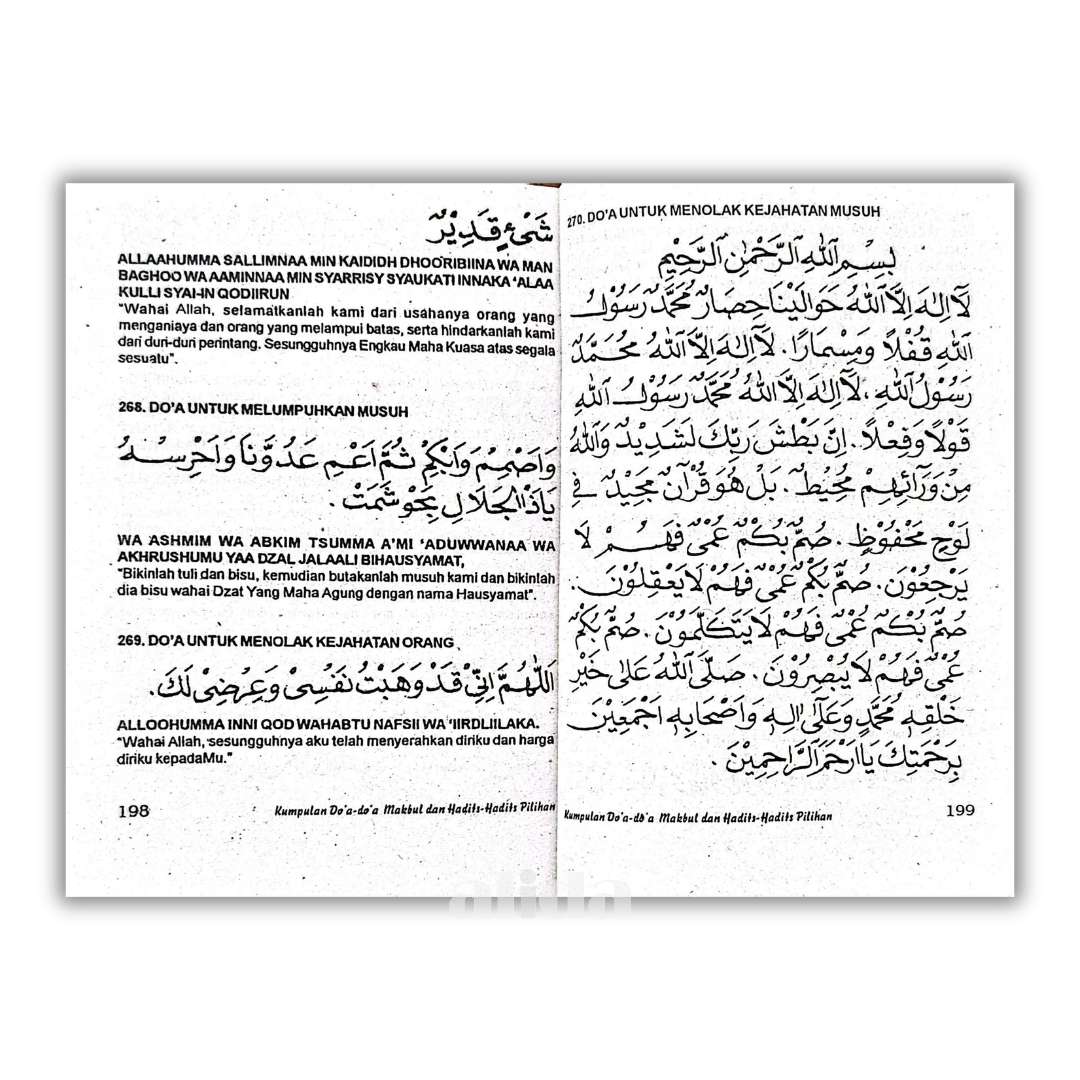 شَىْءٍ قَدِيْرٌ
ALLAAHUMMA SALLIMNAA MIN KAIDIDH DHOORIBIINA WA MAN
BAGHOO WA AAMINNAA MIN SYARRISY SYAUKATI INNAKA 'ALAA
KULLI SYAI-IN QODIIRUN
"Wahai Allah, selamatkanlah kami dari usahanya orang yang
menganiaya dan orang yang melampui batas, serta hindarkanlah kami
dari duri-duri perintang. Sesungguhnya Engkau Maha Kuasa atas segala
sesuatu".
268. DO'A UNTUK MELUMPUHKAN MUSUH
وَاَصْمِمْ وَاَبْكِمْ ثُمَّ اَعْمِ عَدُوَّنَا وَاَخْرِسْهُ
يَاذَا الْجَلَالِ بِحَوْشَمَتْ.
WA ASHMIM WA ABKIM TSUMMA A'MI 'ADUWWANAA WA
AKHRUSHUMU YAA DZAL JALAALI BIHAUSYAMAT,
"Bikinlah tuli dan bisu, kemudian butakanlah musuh kami dan bikinlah
dia bisu wahai Dzat Yang Maha Agung dengan nama Hausyamat".
269. DO'A UNTUK MENOLAK KEJAHATAN ORANG
اَللّٰهُمَّ اِنِّىْ قَدْ وَهَبْتُ نَفْسِىْ وَعِرْضِىْ لَكَ.
ALLOOHUMMA INNI QOD WAHABTU NAFSII WA 'IIRDLIILAKA.
"Wahai Allah, sesungguhnya aku telah menyerahkan diriku dan harga
diriku kepadaMu."
198
Kumpulan Do'a-do'a Makbul dan Hadits-Hadits Pilihan
270. DO'A UNTUK MENOLAK KEJAHATAN MUSUH
بِسْمِ اللّٰهِ الرَّحْمٰنِ الرَّحِيْمِ
لَآ اِلٰهَ اِلَّا اللّٰهُ حَوَالَيْنَا حِصَارٌ مُحَمَّدٌ رَسُوْلُ
اللّٰهِ قُفْلًا وَمِسْمَارًا. لَآ اِلٰهَ اِلَّا اللّٰهُ مُحَمَّدٌ
رَسُوْلُ اللّٰهِ، لَآ اِلٰهَ اِلَّا اللّٰهُ مُحَمَّدٌ رَسُوْلُ اللّٰهِ
قَوْلًا وَفِعْلًا. اِنَّ بَطْشَ رَبِّكَ لَشَدِيْدٌ وَاللّٰهُ
مِنْ وَرَآئِهِمْ مُحِيْطٌ. بَلْ هُوَ قُرْآنٌ مَجِيْدٌ فِى
لَوْحٍ مَحْفُوْظٍ. صُمٌّ بُكْمٌ عُمْىٌ فَهُمْ لَا
يَرْجِعُوْنَ. صُمٌّ بُكْمٌ عُمْىٌ فَهُمْ لَا يَعْقِلُوْنَ.
صُمٌّ بُكْمٌ عُمْىٌ فَهُمْ لَا يَتَكَلَّمُوْنَ. صُمٌّ بُكْمٌ
عُمْىٌ فَهُمْ لَا يُبْصِرُوْنَ. صَلَّى اللّٰهُ عَلٰى خَيْرِ
خَلْقِهٖ مُحَمَّدٍ وَعَلٰٓى اٰلِهٖ وَاَصْحَابِهٖ اَجْمَعِيْنَ
بِرَحْمَتِكَ يَا اَرْحَمَ الرَّاحِمِيْنَ.
Kumpulan Do'a-do'a Makbul dan Hadits-Hadits Pilihan
199
alida